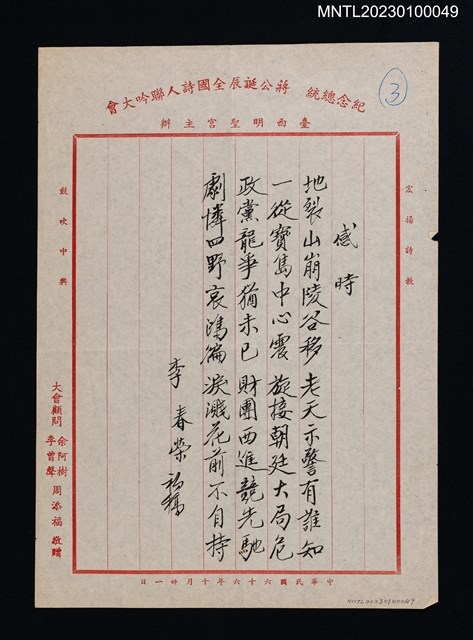 MNTL20230100049
3
紀念總統 蔣公誕辰全國詩人聯吟大會
臺西明聖宮主辦
宏揚詩教
感時
地裂山崩陵谷移 老天示警有誰知
一從寶島中心震 旋接朝廷大局危
政黨龍爭猶未已 財團西進競先馳
劇憐四野哀鴻徧 淚濺花前不自持
李春榮 初稿
鼓吹中興
大會顧問 余阿樹 李曾聲 周添福 敬贈
中華民國六十六年十月卅一日
MNTL20230100049